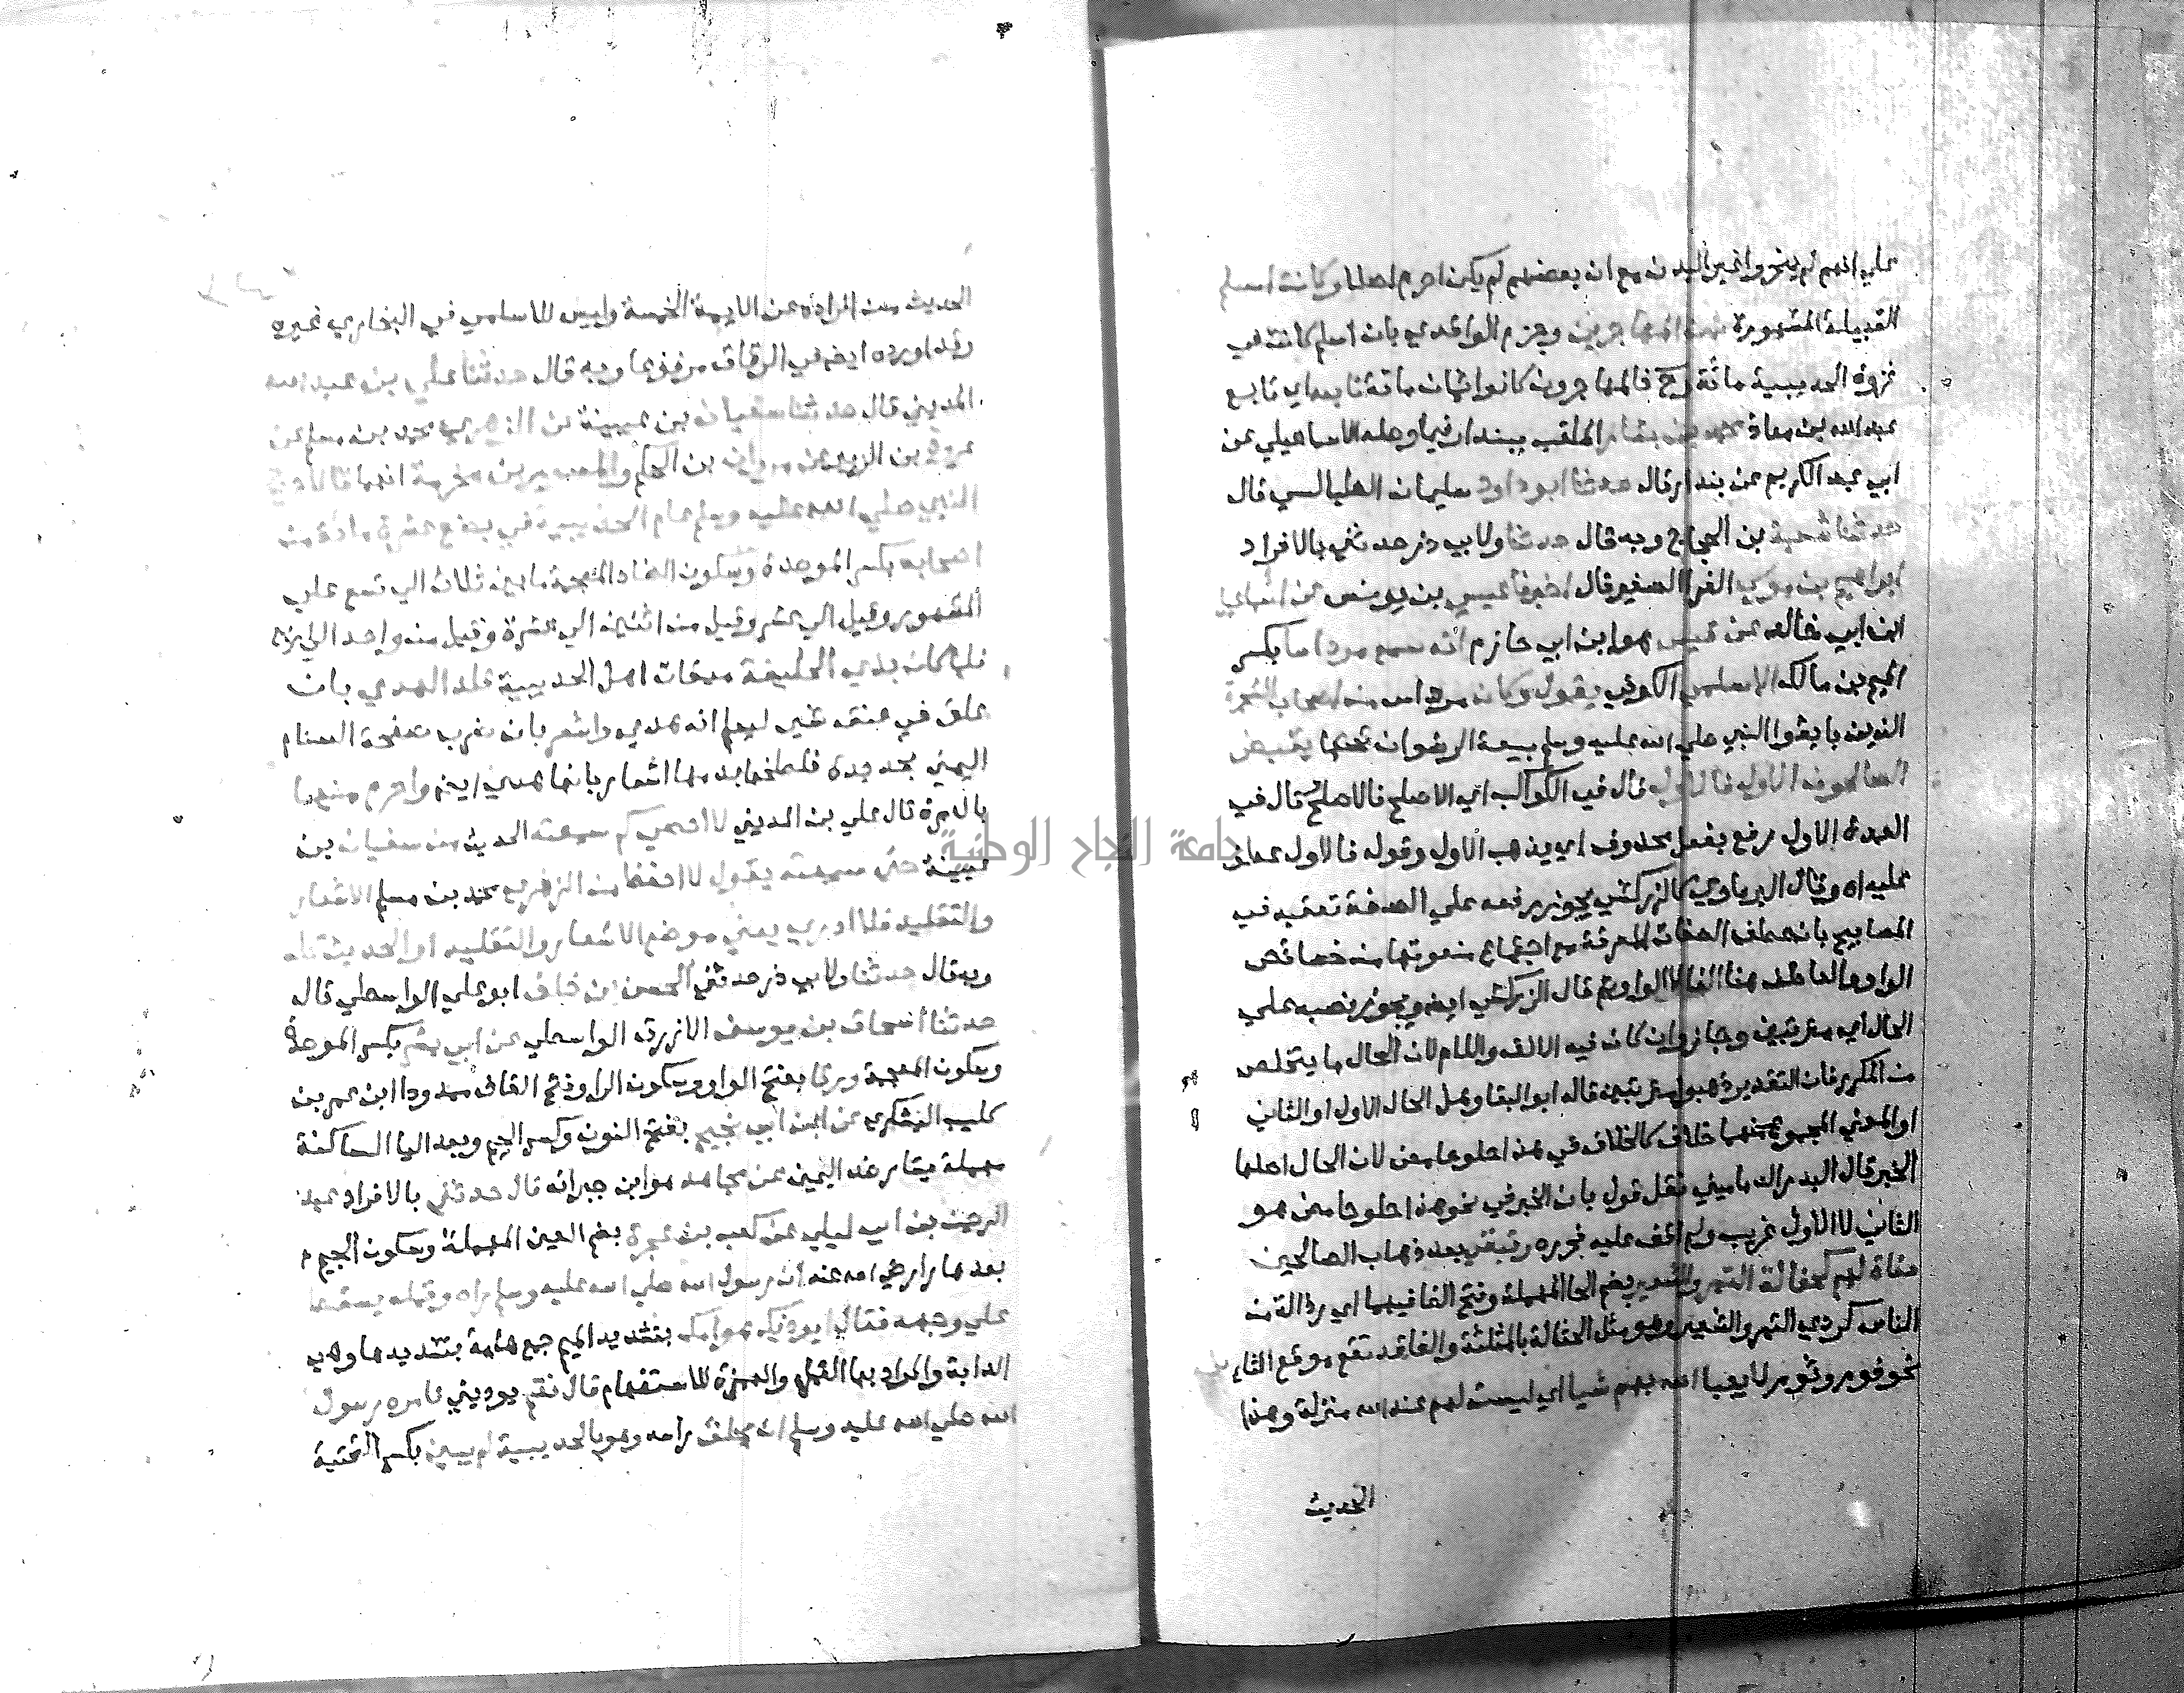 علي انهم لم ينحروا غير البدن مع ان بعضهم لم يكن احرم اصلا وكانت اسلم
القبيلة المشهورة ثمن المهاجرين وجزم الواقدي بان اسلم كانت في
غزوة الحديبية مائة رجل فالمهاجرون كانوا ثمان مائة تابعه اي تابع
عبد الله بن معاذ محمد بن بشار الملقب ببندار فيما وصله الاسماعيلي عن
ابي عبد الكريم عن بندار قال حدثنا ابو داود سليمان الطيالسي قال
حدثنا شعبة بن الحجاج وبه قال حدثنا ولابي ذر حدثني بالافراد
ابراهيم بن موسي الفرا الصغير قال اخبرنا عيسي بن يونس عن اسماعيل
ابن ابي خالد عن قيس هو ابن ابي حازم انه سمع مرداسا بكسر
الميم بن مالك الاسلمي الكوفي يقول وكان مرداس من اصحاب الشجرة
الذين بايعوا النبي صلي الله عليه وسلم بيعة الرضوان تحتها يقبض
الصالحون الاول فالاول قال في الكواكب اي الاصلح فالاصلح قال في
العمدة الاول رفع بفعل محذوف اي يذهب الاول وقوله فالاول عطف
عليه اه وقال البرماوي كالزركشي يجوز رفعه علي الصفة تعقبه في
المصابيح بان عطف الصفات المفرقة مع اجتماع منعوتها من خصائص
الواو والعاطف هنا الفا لا الواو ثم قال الزركشي ايض ويجوز نصبه علي
الحال اي مترتبين وجاز وان كان فيه الالف واللام لان الحال ما يتخلص
من المكرر فان التقدير ذهبوا مترتبين قاله ابو البقا وهل الحال الاول او الثاني
او المعني المجموع منهما خلاف كالخلاف في هذا حلو حامض لان الحال اصلها
الخبر قال البدر الدماميني نقل قول بان الخبر في نحو هذا حلو حامض هو
الثاني لا الاول غريب ولم اقف عليه فحرره وتبقي بعد ذهاب الصالحين
حفالة لهم كحفالة التمر والشعير بضم الحا المهملة وفتح الفا فيهما اي رذالة من
الناس كردي التمر والشعير وهو مثل الحثالة بالمثلثة والفا قد تقع موقع الثا
نحو فوم وثوم لا يعبا الله بهم شيا اي ليست لهم عند الله منزلة وهذا
الحديث
الحديث من افراده عن الايمة الخمسة وليس للاسلمي في البخاري غيره
وقد اورده ايض في الرقاق مرفوعا وبه قال حدثنا علي بن عبد الله
المديني قال حدثنا سفيان بن عيينة عن الزهري محمد بن مسلم عن
عروة بن الزبير عن مروان بن الحكم والمسور بن مخرمة انهما قالا خرج
النبي صلي الله عليه وسلم عام الحديبية في بضع عشرة مائة من
اصحابه بكسر الموحدة وسكون الضاد المعجمة ما بين ثلاث الي تسع علي
المشهور وقيل الي عشر وقيل من اثنين الي عشرة وقيل من واحد الي اربعة
فلما كان بذي الحليفة ميقات اهل الحديبية قلد الهدي بان
علق في عنقه شيئ ليعلم انه هدي واشعر بان ضرب صفحة السنام
اليمني بحديدة فلطخها بدمها اشعار بانها هدي ايض واحرم منها
بالعمرة قال علي بن المديني لا احصي كم سمعته الحديث من سفيان بن
عيينة حتي سمعته يقول لا احفظ من الزهري محمد بن مسلم الاشعار
والتقليد فلا ادري يعني موضع الاشعار والتقليد او الحديث كله
وبه قال حدثنا ولابي ذر حدثني الحسن بن خلف ابو علي الواسطي قال
حدثنا اسحاق بن يوسف الازرق الواسطي عن ابي بشر بكسر الموحدة
وسكون المعجمة ورقا بفتح الواو وسكون الرا وفتح القاف ممدودا ابن عمر بن
كليب اليشكري عن ابن ابي نجيح بفتح النون وكسر الجيم وبعد اليا الساكنة
مهملة يسار ضد اليمين عن مجاهد هو ابن جبر انه قال حدثني بالافراد عبد
الرحمن بن ابي ليلي عن كعب بن عجرة بضم العين المهملة وسكون الجيم
بعدها را رضي الله عنه ان رسول الله صلي الله عليه وسلم راه وقمله يسقط
علي وجهه فقال ايوذيك هوامك بتشديد الميم جمع هامة بتشديدها وهي
الدابة والمراد بها القمل والهمزة للاستفهام قال نعم يوذيني فامره رسول
الله صلي الله عليه وسلم ان يحلق راسه وهو بالحديبية لم يبين بكسر التحتية
جامعة النجاح الوطنية